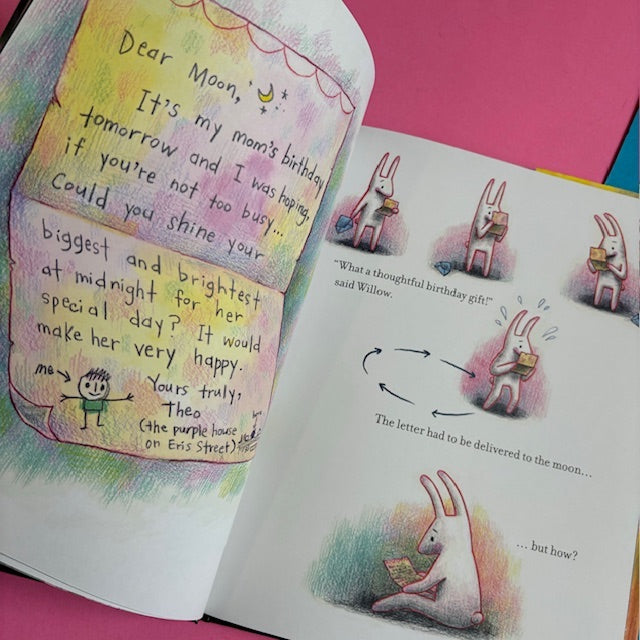 Dear Moon,
It's my mom's birthday
tomorrow and I was hoping,
if you're not too busy...
Could you shine your
biggest and brightest
at midnight for her
special day? It would
make her very happy.
me
Yours truly,
Theo
(the purple house
on Eris Street)
"What a thoughtful birthday gift!"
said Willow.
The letter had to be delivered to the moon...
... but how?